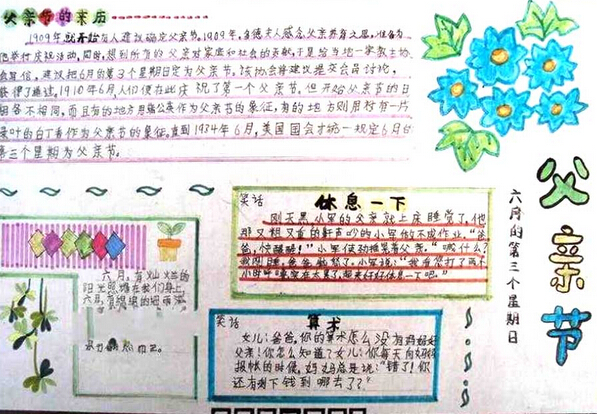 父亲节的来历
1909年就开始有人建议确定父亲节。1909年,多德夫人感念父亲养育之恩,准备为
他举行庆祝活动,同时,想到所有的父亲对家庭和社会的贡献,于是给当地一家教士协
会写信,建议把6月的第3个星期日定为父亲节。该协会将建议提交会员讨论,
获得了通过。1910年6月人们便在此庆祝了第一个父亲节。但开始父亲节的日
期各不相同,而且有的地方用蒲公英作为父亲节的象征,有的地方则用衬有一片
绿叶的白丁香作为父亲节的象征,直到1934年6月,美国国会才统一规定6月的
第三个星期为父亲节。
父亲节
六月的第三个星期日
笑话
休息一下
刚天黑,小军的父亲就上床睡觉了,他
那又粗又重的鼾声吵的小军做不成作业。“爸
爸,快醒醒!”小军使劲摇晃着父亲。
“我看您打了两个
小时呼噜实在太累了,起来好好休息一下吧。”
六月,有灿烂的
阳光照耀在我们身上,
六月,有绵绵的细雨滋
笑话
算术
女儿:爸爸,你的算术怎么没有妈妈好
父亲:你怎么知道?女儿:你每天向妈妈
报帐的时候,妈妈总是说:“错了!你
还有剩下钱到哪去了?”